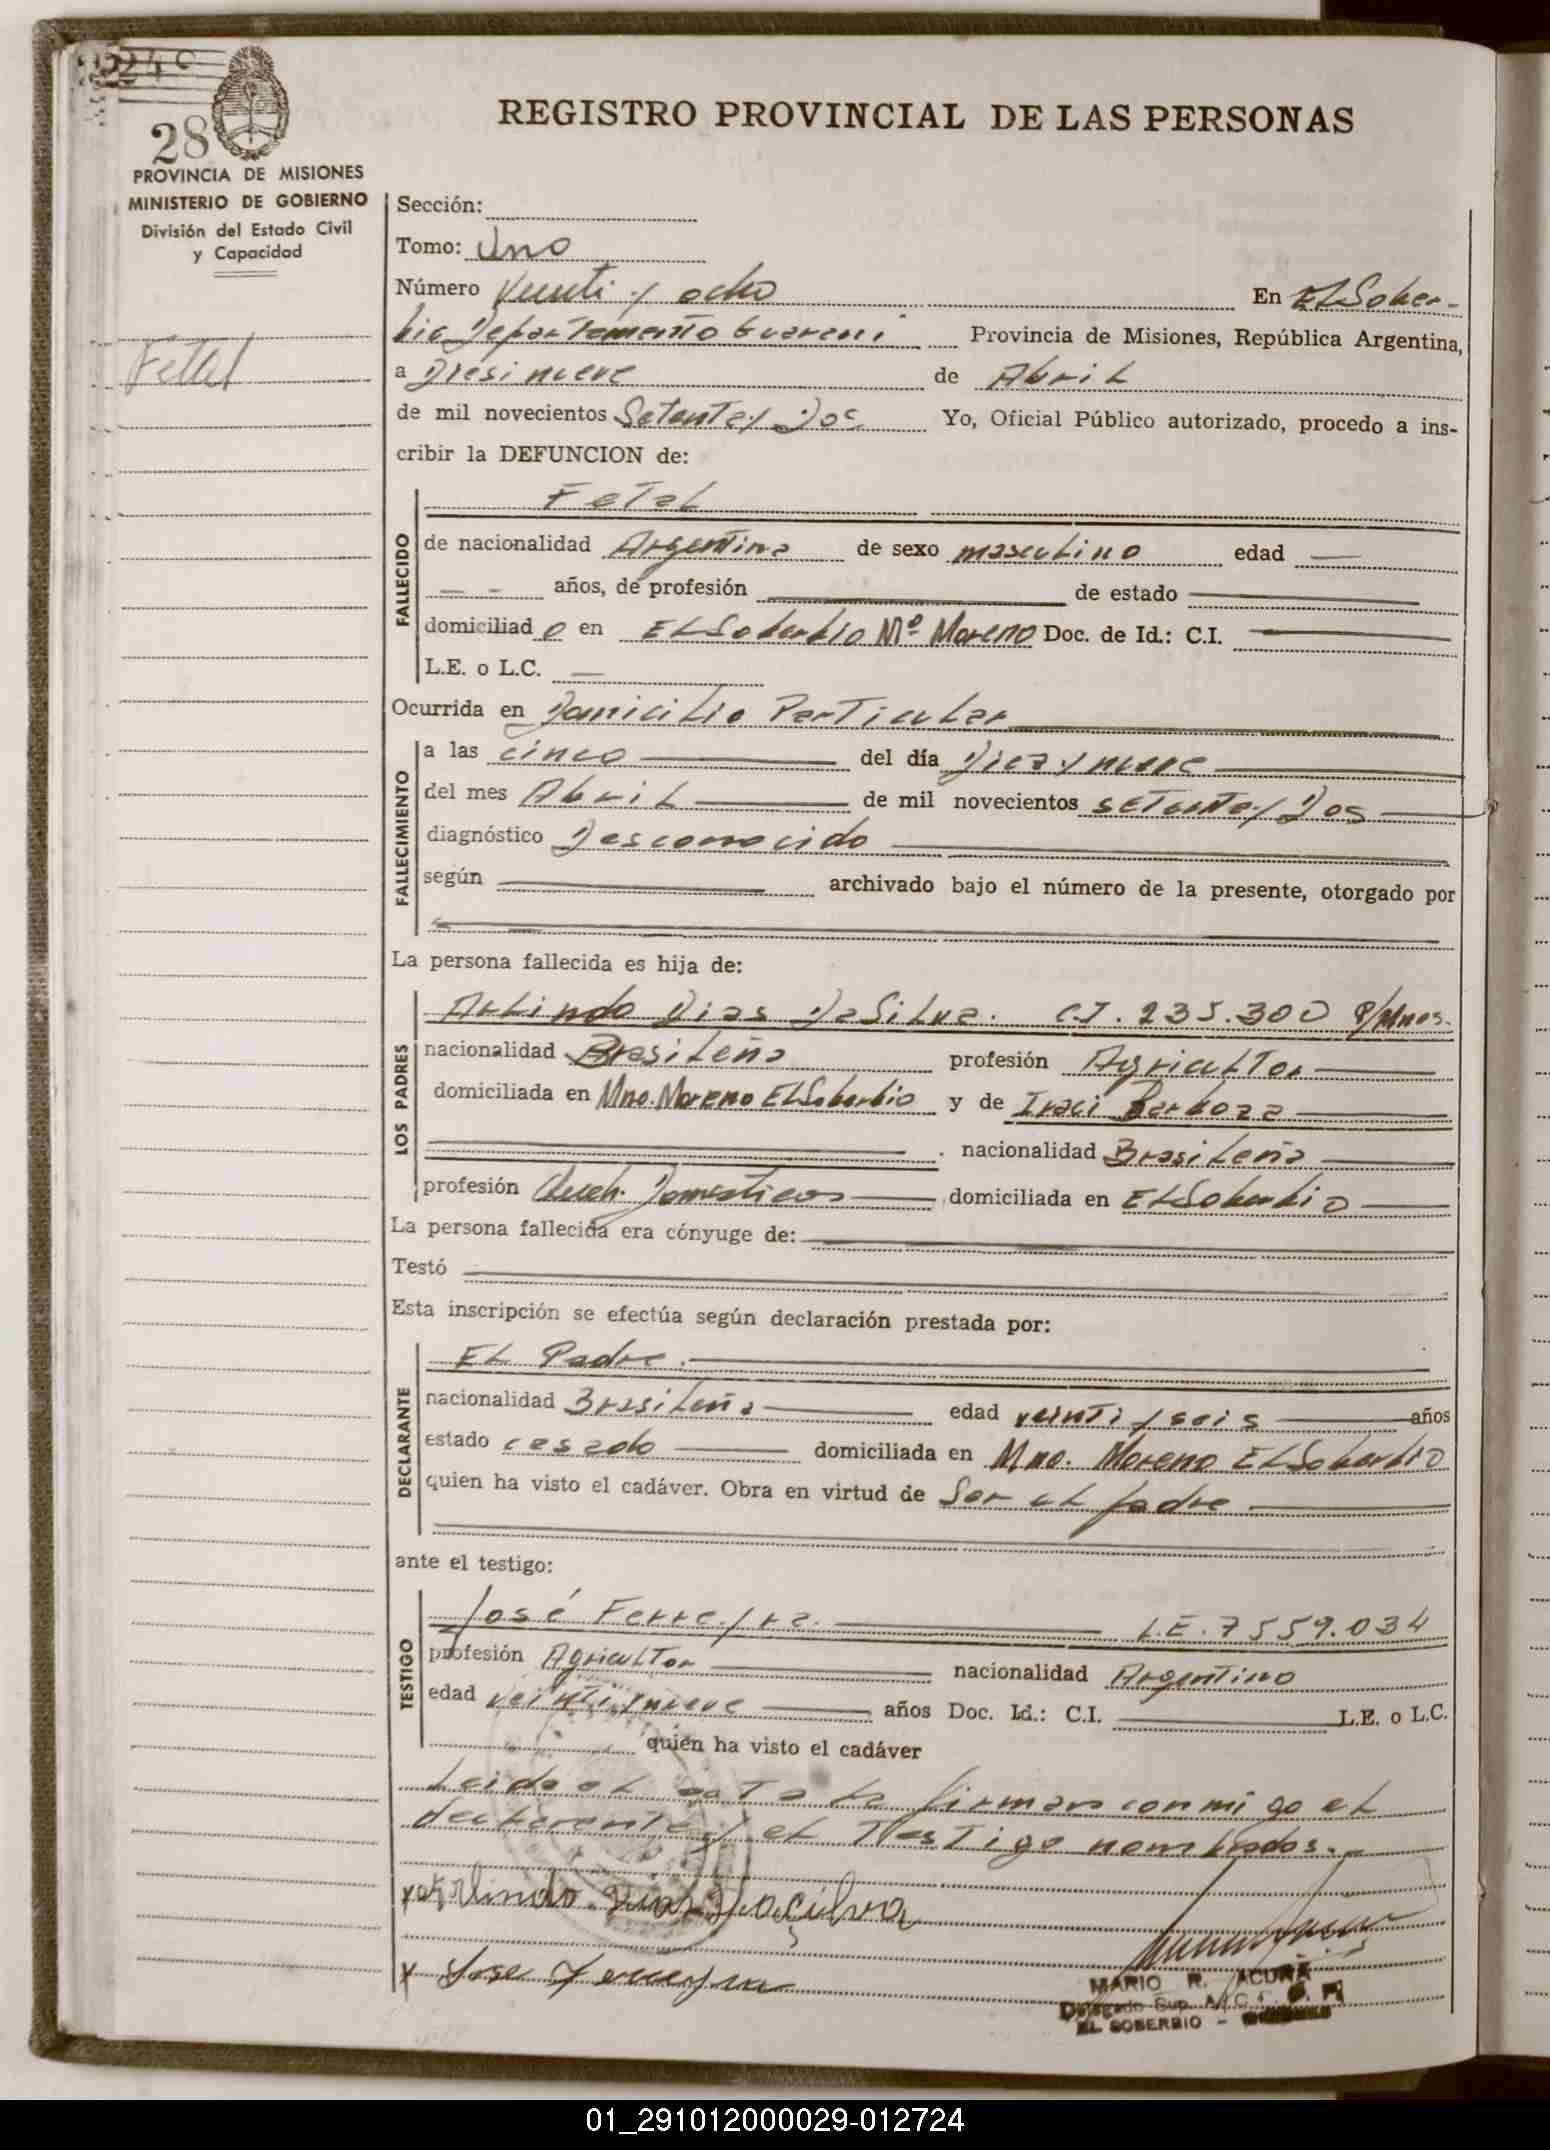 REGISTRO PROVINCIAL DE LAS PERSONAS
28
PROVINCIA DE MISIONES
MINISTERIO DE GOBIERNO
División del Estado Civil
y Capacidad
Fetal
Sección:
Tomo: Uno
Número Veinti y ocho En El Sober-
bio Departamento Guarani Provincia de Misiones, República Argentina,
a Diesinueve de Abril
de mil novecientos Setenta y Dos Yo, Oficial Público autorizado, procedo a ins-
cribir la DEFUNCION de:
Fetal
FALLECIDO
de nacionalidad Argentina de sexo masculino edad —
— - años, de profesión de estado
domiciliado en El Soberbio Mº Moreno Doc. de Id.: C.I.
L.E. o L.C. —
Ocurrida en Domicilio Particular
FALLECIMIENTO
a las cinco del día Diez y nueve
del mes Abril de mil novecientos setenta y Dos
diagnóstico Desconocido
según archivado bajo el número de la presente, otorgado por
La persona fallecida es hija de:
LOS PADRES
Arlindo Dias Da Silva. C.I. 235.300 P/Mnes.
nacionalidad Brasileña profesión Agricultor
domiciliada en Mno. Moreno El Soberbio y de Iraci Barboza
nacionalidad Brasileña
profesión Queh. Domesticos domiciliada en El Soberbio
La persona fallecida era cónyuge de:
Testó
Esta inscripción se efectúa según declaración prestada por:
DECLARANTE
El Padre.
nacionalidad Brasileña edad veinti y seis años
estado casado domiciliada en Mno. Moreno El Soberbio
quien ha visto el cadáver. Obra en virtud de Ser el padre
ante el testigo:
TESTIGO
José Ferreyra. L.E. 7559.034
profesión Agricultor nacionalidad Argentino
edad veinti y nueve años Doc. Id.: C.I. L.E. o L.C.
quien ha visto el cadáver
Leida el acta la firman conmigo el
declarante y el Testigo nombrados.
Arlindo Dias Da Çilva
Jose Ferreyra
MARIO R. ACUÑA
Delegado Sup.
EL SOBERBIO -
01_291012000029-012724